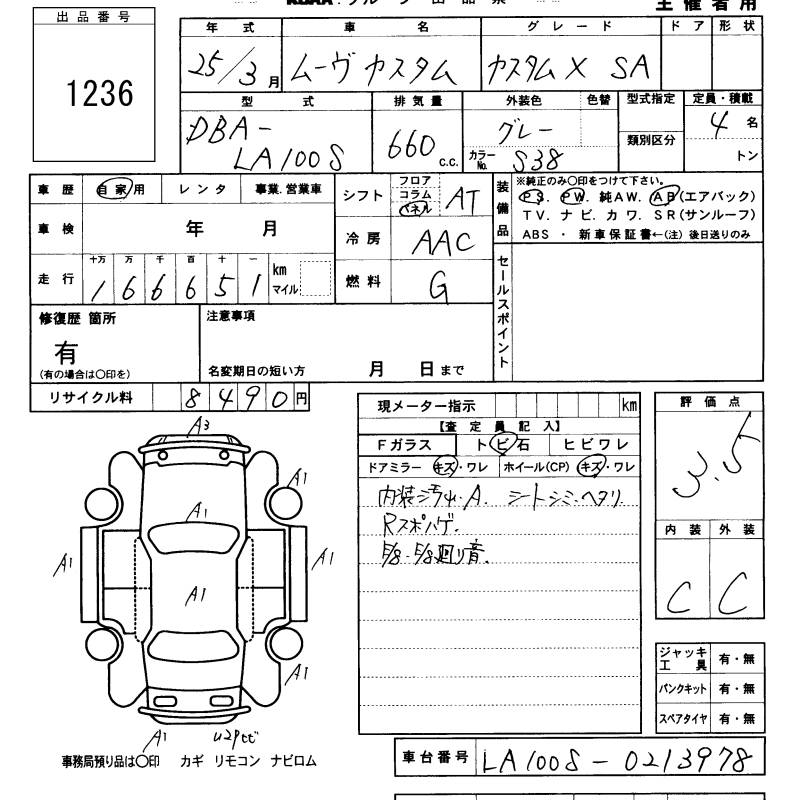 出品番号
1236
主催者用
年式 車名 グレード ドア 形状
25/3月 ムーヴカスタム カスタムX SA
型式 排気量 外装色 色替 型式指定 定員・積載
DBA-LA100S 660c.c. グレー 類別区分 4名
カラーNo. S38 トン
車歴 自家用 レンタ 事業.営業車
シフト フロア コラム パネル AT
車検 年 月
冷房 AAC
走行 十万 万 千 百 十 一
166651 km マイル
燃料 G
装備品 ※純正のみ〇印をつけて下さい。
PS. PW. 純AW. AB(エアバック)
TV. ナビ. カワ. SR(サンルーフ)
ABS ・ 新車保証書←(注) 後日送りのみ
セールスポイント
修復歴 箇所
有
(有の場合は〇印を)
注意事項
名変期日の短い方 月 日まで
リサイクル料 8490円
現メーター指示 km
【査定員記入】
Fガラス トビ石 ヒビワレ
ドアミラー キズ・ワレ ホイール(CP) キズ・ワレ
内装汚れ・A. シートシミ・ヘタリ
Rスポハゲ.
F/8・F/8廻り音.
評価点
3.5
内装 外装
C C
A3
A1
A1
A1
A1
A1
A1
A1
ジャッキ工具 有・無
パンクキット 有・無
スペアタイヤ 有・無
事務局預り品は〇印 カギ リモコン ナビロム
車台番号 LA100S-0213978